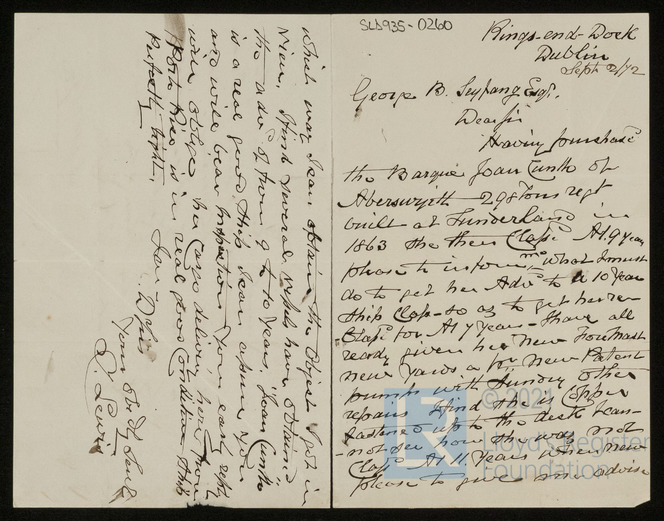 SLD935-0260
Rings-end-Dock
Dublin
Sept 2/72
George B. Seyfang Esqr.
Dear Sir
Having purchasd
the Barque Joan Cunllo of
Aberswyith 298 tons regt
built at Sunderland in
1863 she then Classd A1 9 years
please to inform me what I must
do to get her Advd to a 10 Year
Ship Class - so as to get her re-
Classd for A1 7 years - I have all
ready given her New Foremast
New Yards & for New Patent
pumps with Sundry other
repairs I find she is Copper
fastened up to the deck I can-
not see how she was not
Classd A1 11 Years when New
please to give me advise
which way I can obtain the Object I got in
View. I find several Vessels have obtained
the advd from 9 to 10 years. Joan Cunllo
is a real good Ship I can assure you
and will bear Inspection your early reply
will oblige her Cargo delivery here from
is in real good Condition Ship
Perfectly tight.
I am Dr Sir
Your Obt St
J. Lewis
© 2021
Lloyd's Register
Foundation